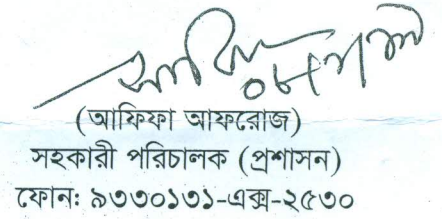 (আফিফা আফরোজ)
সহকারী পরিচালক (প্রশাসন)
ফোন: ৯৩৩০১৩১-এক্স-২৫৩০